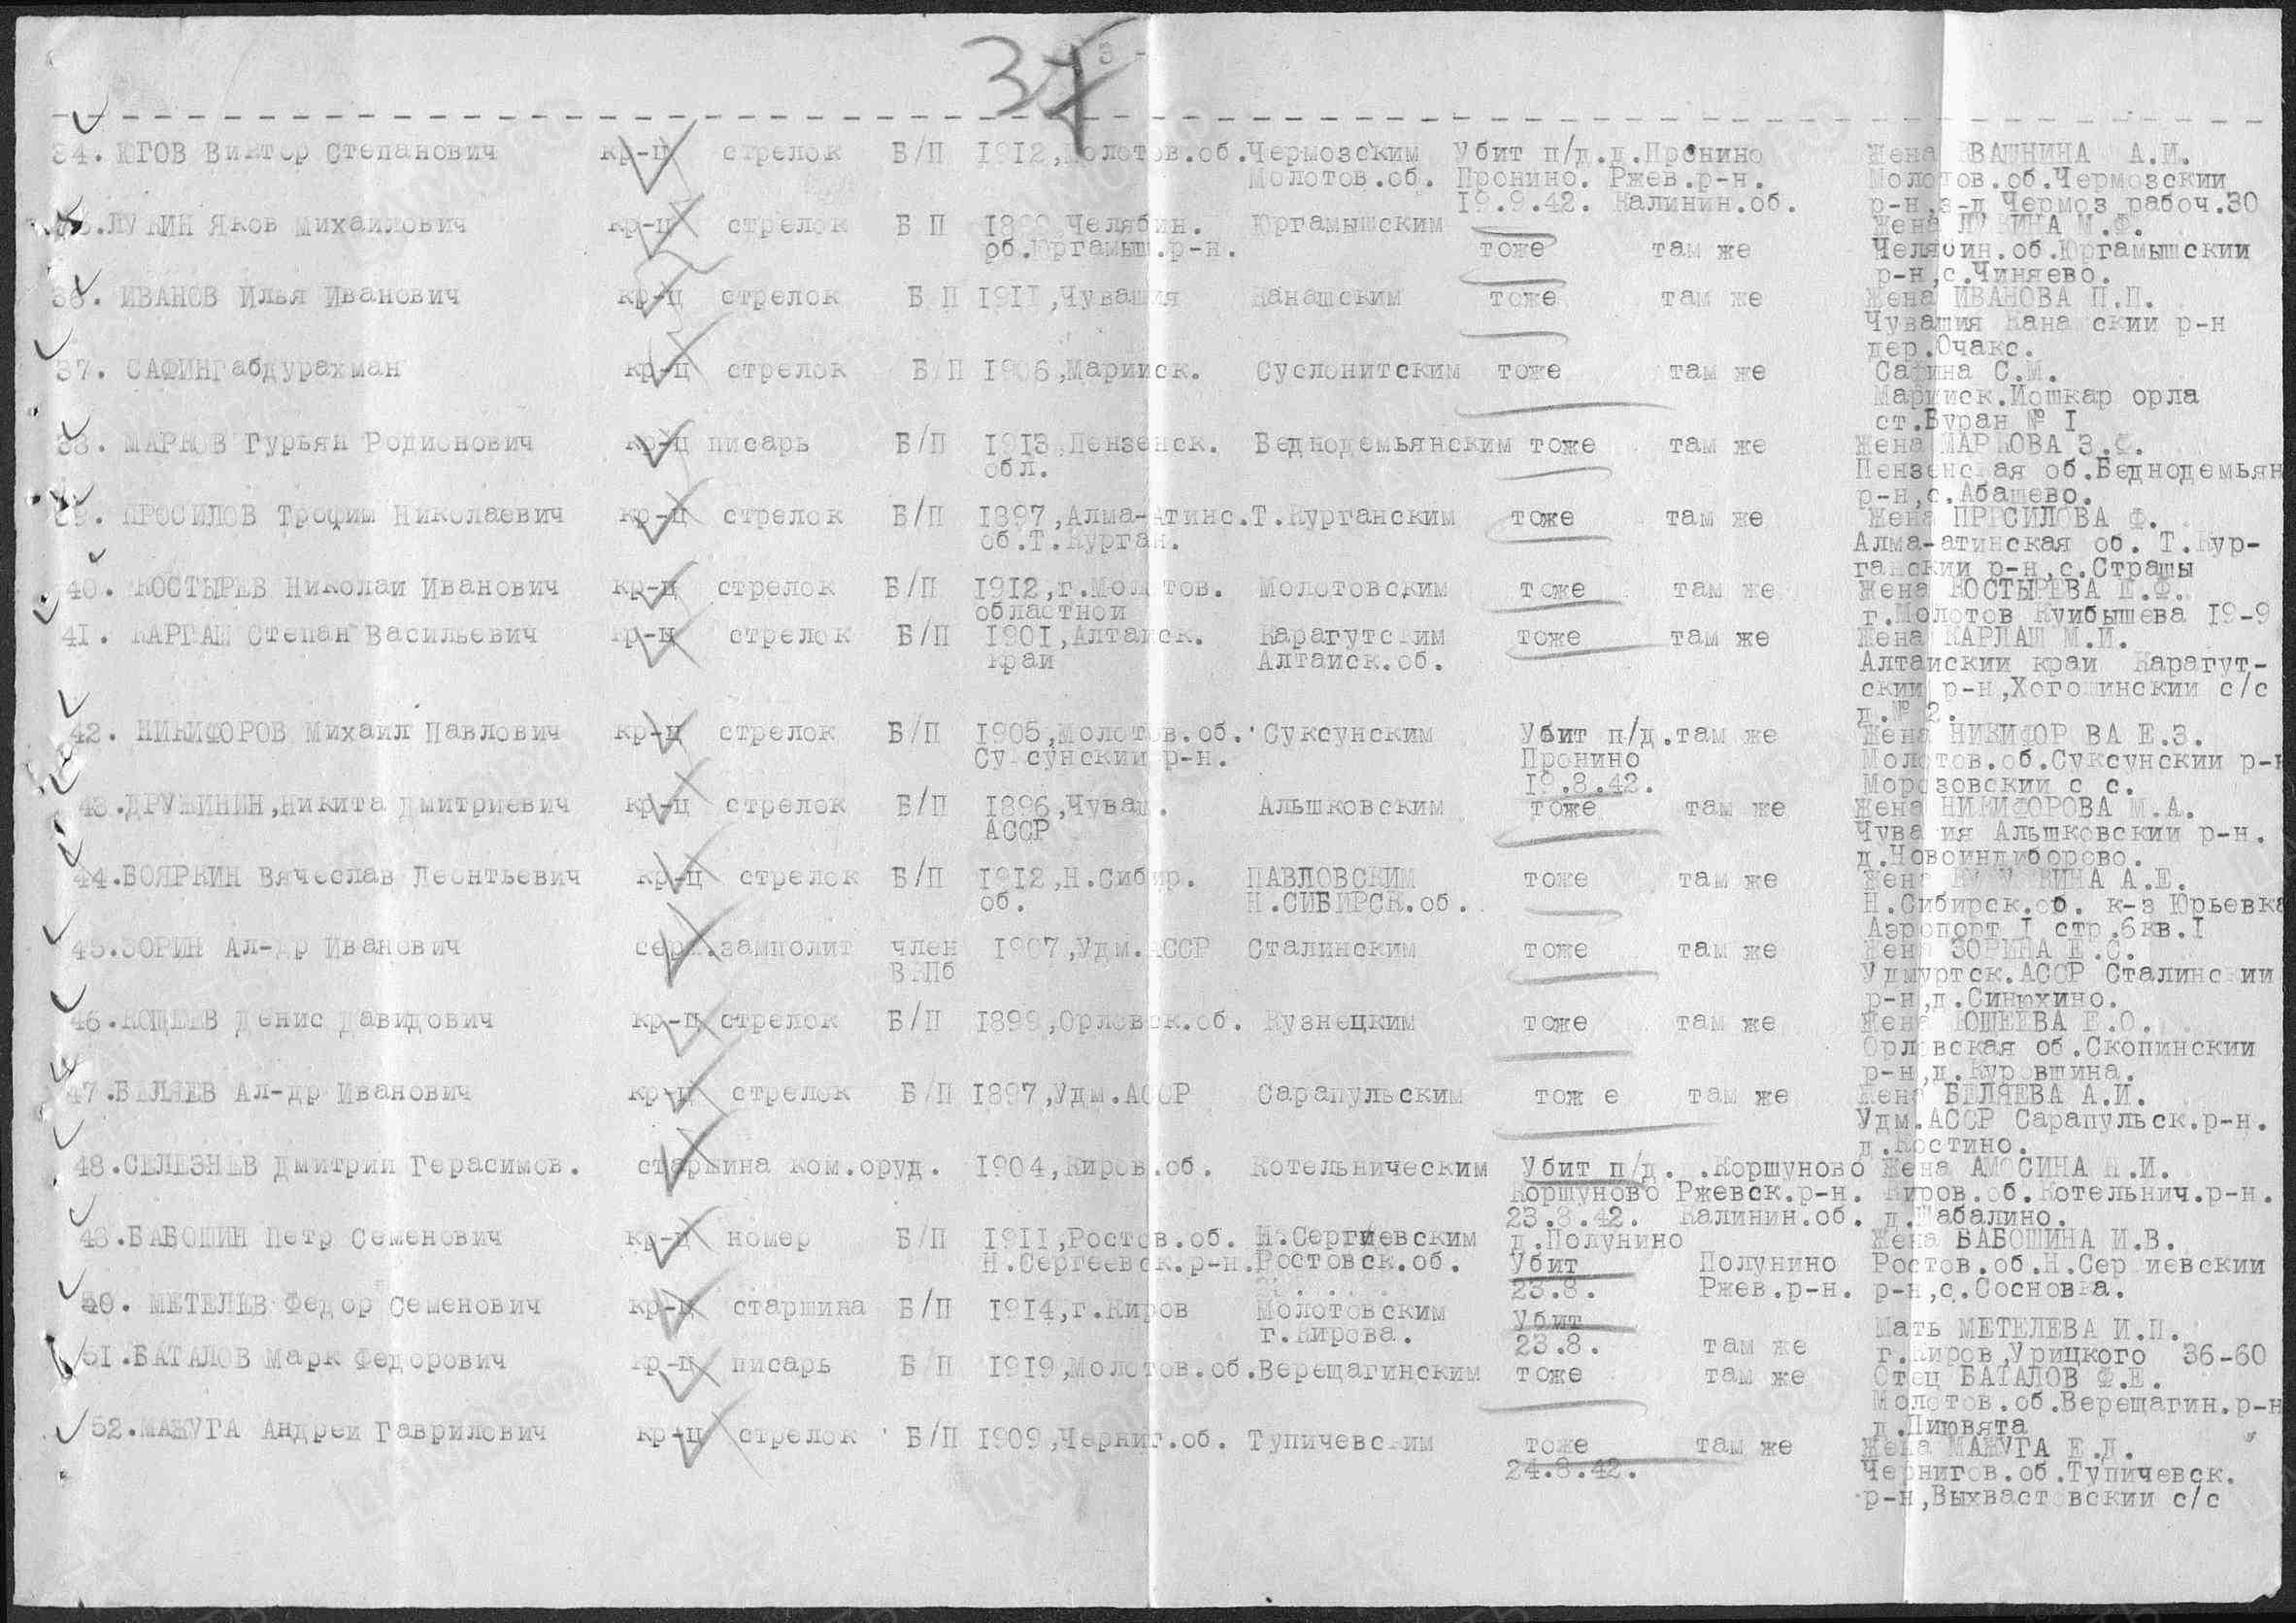 37
34. ЮГОВ Виктор Степанович кр-ц стрелок Б/П 1912,Молотов.об. Чермозским Убит п/д.д.Пронино Жена КВАШНИНА А.И.
Молотов.об. Пронино. Ржев.р-н. Молотов.об.Чермозский
19.9.42. Калинин.об. р-н,з-д Чермоз рабоч.30
35.ЛУКИН Яков Михайлович кр-ц стрелок Б П Челябин. Юргамышским Жена ЛУКИНА М.Ф.
об.Юргамыш.р-н. тоже там же Челябин.об.Юргамышский
р-н,с.Чиняево.
36. ИВАНОВ Илья Иванович кр-ц стрелок Б П 1911,Чувашия Канашским тоже там же Жена ИВАНОВА П.П.
Чувашия Канашский р-н
дер.Очакс.
37. САФИН Габдурахман кр-ц стрелок Б/П 1906,Марийск. Суслонитским тоже там же Сафина С.М.
Марийск.Йошкар орла
ст.Буран № 1
38. МАРКОВ Гурьян Родионович кр-ц писарь Б/П 1913,Пензенск. Беднодемьянским тоже там же Жена МАРКОВА З.Ф.
обл. Пензенская об.Беднодемьян
р-н,с.Абашево.
39. ПРОСИЛОВ Трофим Николаевич кр-ц стрелок Б/П 1897,Алма-Атинс. Т.Курганским тоже там же Жена ПРОСИЛОВА Ф.
об.Т.Курган. Алма-атинская об. Т.Кур-
ганский р-н,с.Страшы
40. КОСТЫРЕВ Николай Иванович кр-ц стрелок Б/П 1912,г.Молотов. Молотовским тоже там же Жена КОСТЫРЕВА Е.Ф.
областной г.Молотов Куйбышева 19-9
41. КАРЛАШ Степан Васильевич кр-ц стрелок Б/П 1901,Алтайск. Карагутским тоже там же Жена КАРЛАШ М.И.
край Алтайск.об. Алтайский край Карагут-
ский р-н,Хогошинский с/с
д.№ 2.
42. НИКИФОРОВ Михаил Павлович кр-ц стрелок Б/П 1905,Молотов.об. Суксунским Убит п/д. там же Жена НИКИФОРОВА Е.З.
Суксунский р-н. Пронино Молотов.об.Суксунский р-н
19.8.42. Морозовский с с.
43.ДРУЖИНИН,Никита Дмитриевич кр-ц стрелок Б/П 1896,Чуваш. Альшковским тоже там же Жена НИКИФОРОВА М.А.
АССР Чувашия Альшковский р-н.
д.Новоиндиборово.
44.БОЯРКИН Вячеслав Леонтьевич кр-ц стрелок Б/П 1912,Н.Сибир. ПАВЛОВСКИМ тоже там же Жена А.Е.
об. Н.СИБИРСК.об. Н.Сибирск.об. к-з Юрьевка
Аэропорт 1 стр.6кв.1
45.ЗОРИН Ал-др Иванович серж.замполит член 1907,Удм.АССР Сталинским тоже там же Жена ЗОРИНА Е.С.
ВКПб Удмуртск.АССР Сталинский
р-н,д.Синюхино.
46.КОЩЕЕВ Денис Давидович кр-ц стрелок Б/П 1899,Орловск.об. Кузнецким тоже там же Жена КОЩЕЕВА Е.О.
Орловская об.Скопинский
р-н,д.Куровшина.
47.БЕЛЯЕВ Ал-др Иванович кр-ц стрелок Б/П 1897,Удм.АССР Сарапульским тож е там же Жена БЕЛЯЕВА А.И.
Удм.АССР Сарапульск.р-н.
д.Костино.
48.СЕЛЕЗНЕВ Дмитрий Герасимов. старшина ком.оруд. 1904,Киров.об. Котельническим Убит п/д. .Коршуново Жена АМОСИНА И.
Коршуново Ржевск.р-н. Киров.об.Котельнич.р-н.
23.8.42. Калинин.об. д.Шабалино.
48.БАБОШИН Петр Семенович кр-ц номер Б/П 1911,Ростов.об. Н.Сергиевским д.Полунино Жена БАБОШИНА И.В.
Н.Сергеевск.р-н.Ростовск.об. Убит Полунино Ростов.об.Н.Сергиевский
23.8. Ржев.р-н. р-н,с.Сосновка.
50. МЕТЕЛЕВ Федор Семенович кр-ц старшина Б/П 1914,г.Киров Молотовским Убит Мать МЕТЕЛЕВА И.П.
г.Кирова. 23.8. там же г.Киров,Урицкого 36-60
51.БАТАЛОВ Марк Федорович кр-ц писарь Б П 1919,Молотов.об.Верещагинским тоже там же Отец БАТАЛОВ Ф.Е.
Молотов.об.Верещагин.р-н
д.Пиювята
52.МАЖУГА Андрей Гаврилович кр-ц стрелок Б/П 1909,Черниг.об. Тупичевским тоже там же Жена МАЖУГА Е.Д.
24.8.42. Чернигов.об.Тупичевск.
р-н,Выхвастовский с/с